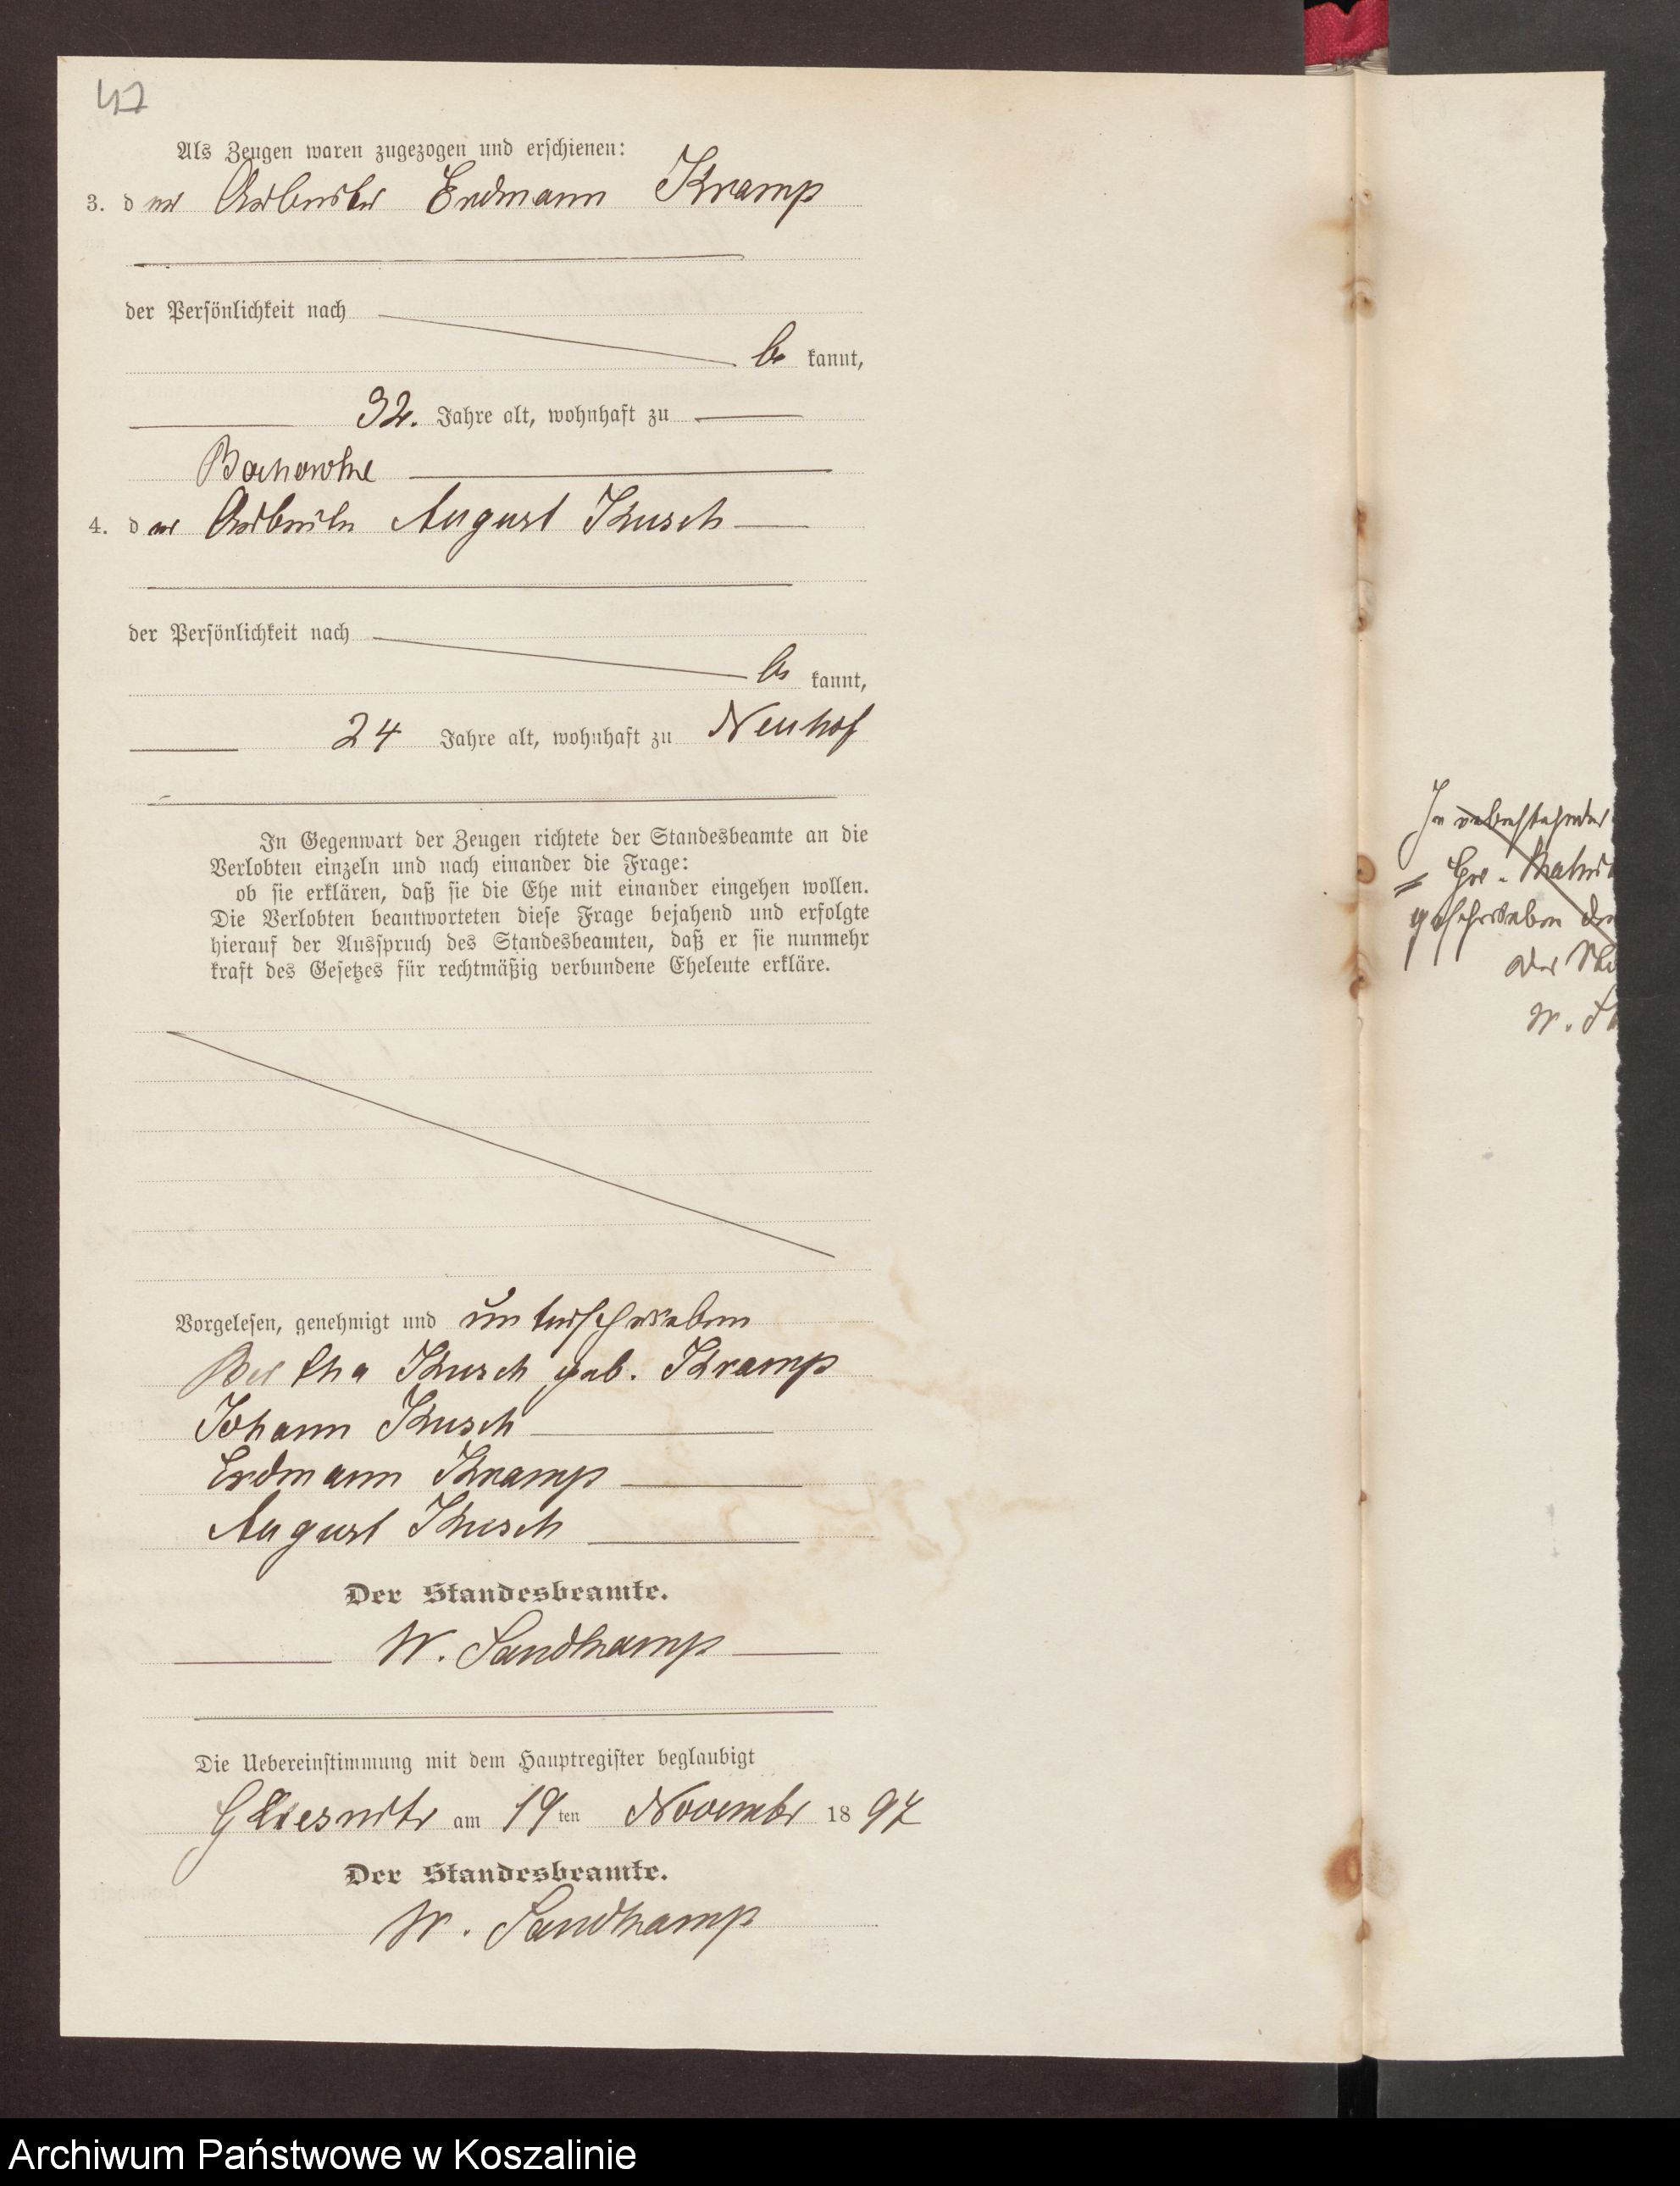 47
Als Zeugen waren zugezogen und erschienen:
3. der Arbeiter Erdmann Kramp
der Persönlichkeit nach
be kannt,
32. Jahre alt, wohnhaft zu
Bochowke
4. der Arbeiter August Kusch
der Persönlichkeit nach
be kannt,
24 Jahre alt, wohnhaft zu Neuhof
In Gegenwart der Zeugen richtete der Standesbeamte an die
Verlobten einzeln und nach einander die Frage:
ob sie erklären, daß sie die Ehe mit einander eingehen wollen.
Die Verlobten beantworteten diese Frage bejahend und erfolgte
hierauf der Ausspruch des Standesbeamten, daß er sie nunmehr
kraft des Gesetzes für rechtmäßig verbundene Eheleute erkläre.
Vorgelesen, genehmigt und unterschrieben
Bertha Kusch geb. Kramp
Johann Kusch
Erdmann Kramp
August Kusch
Der Standesbeamte.
W. Sandkamp
Die Uebereinstimmung mit dem Hauptregister beglaubigt
am 19ten November 1897
Der Standesbeamte.
W. Sandkamp
In nebenstehender
geschrieben
der
W.
Archiwum Państwowe w Koszalinie